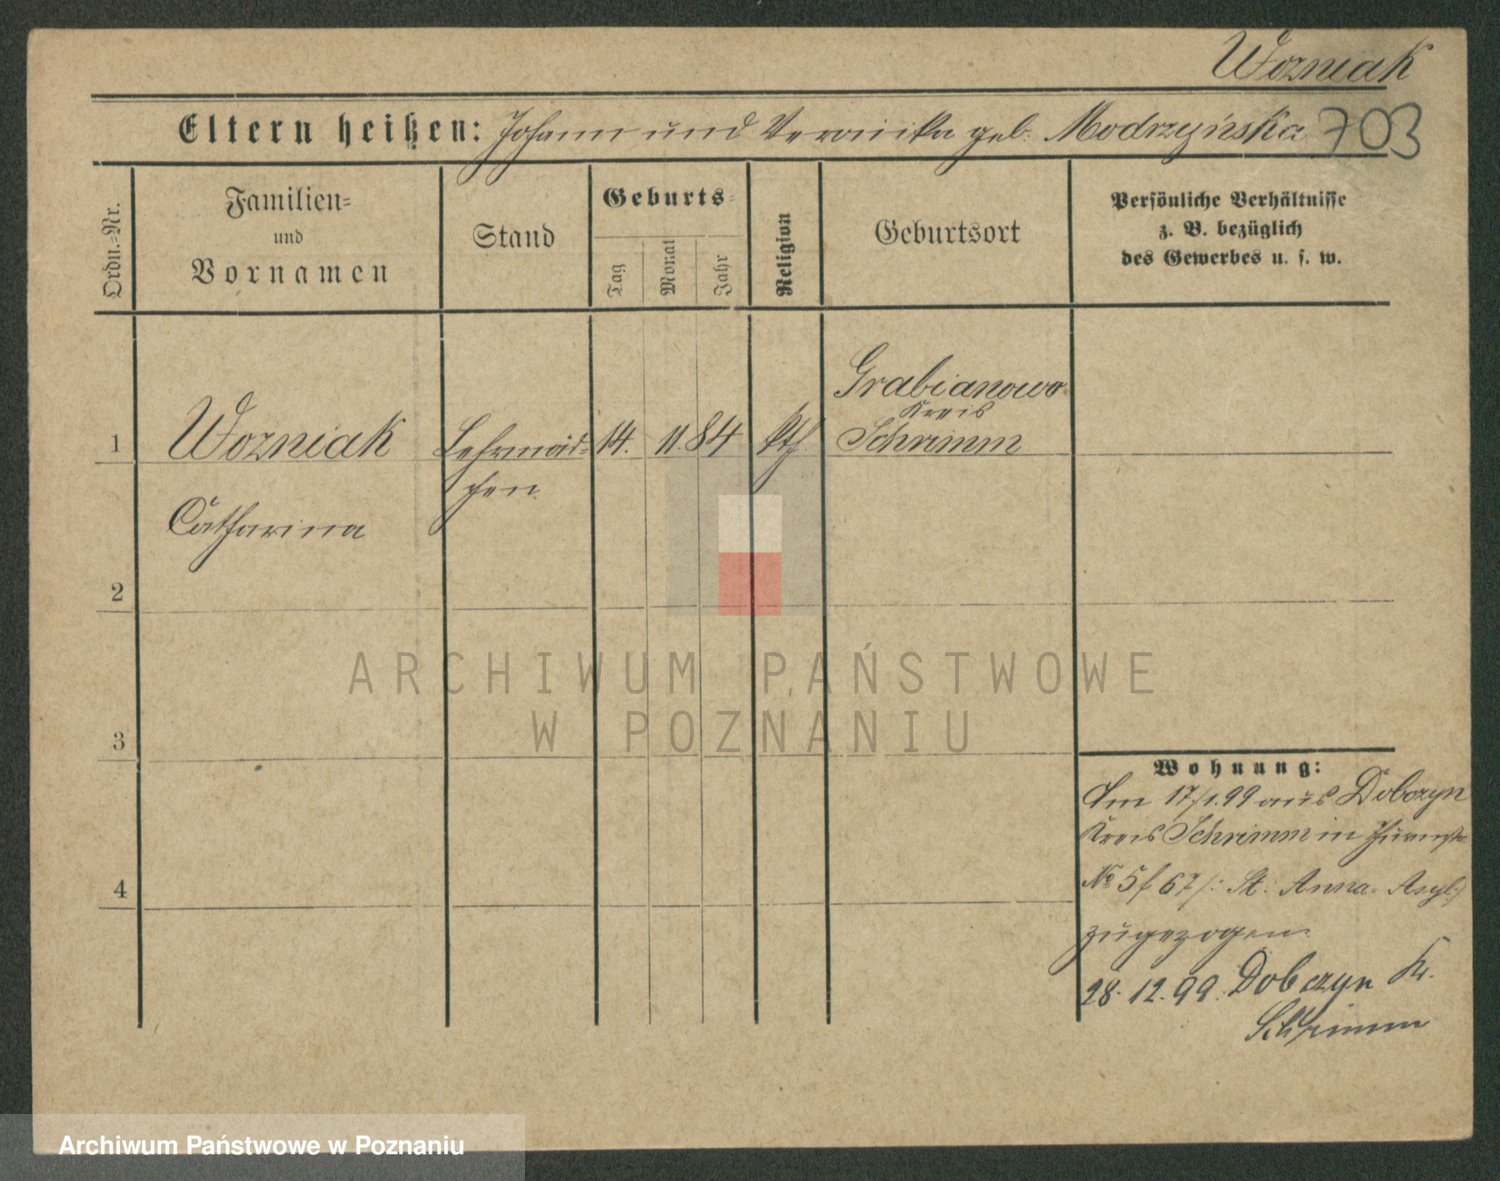 Wozniak
Eltern heißen: Johann und Veronika geb. Modrzyńska 703
Ordn.=Nr.
Familien=
und
Vornamen
Stand
Geburts=
Tag
Monat
Jahr
Religion
Geburtsort
Persönliche Verhältnisse
z. B. bezüglich
des Gewerbes u. s. w.
1
Wozniak
Catharina
Lehrmäd=
chen
14.
11.
84
kth.
Grabianowo
Kreis
Schrimm
2
3
4
ARCHIWUM PAŃSTWOWE
W POZNANIU
Wohnung:
Am 17/1.99 aus Dobczyn
Kreis Schrimm in
No 5 f 67/: St. Anna-Asyl:/
zugezogen.
28.12.99. Dobczyn Kr.
Schrimm
Archiwum Państwowe w Poznaniu